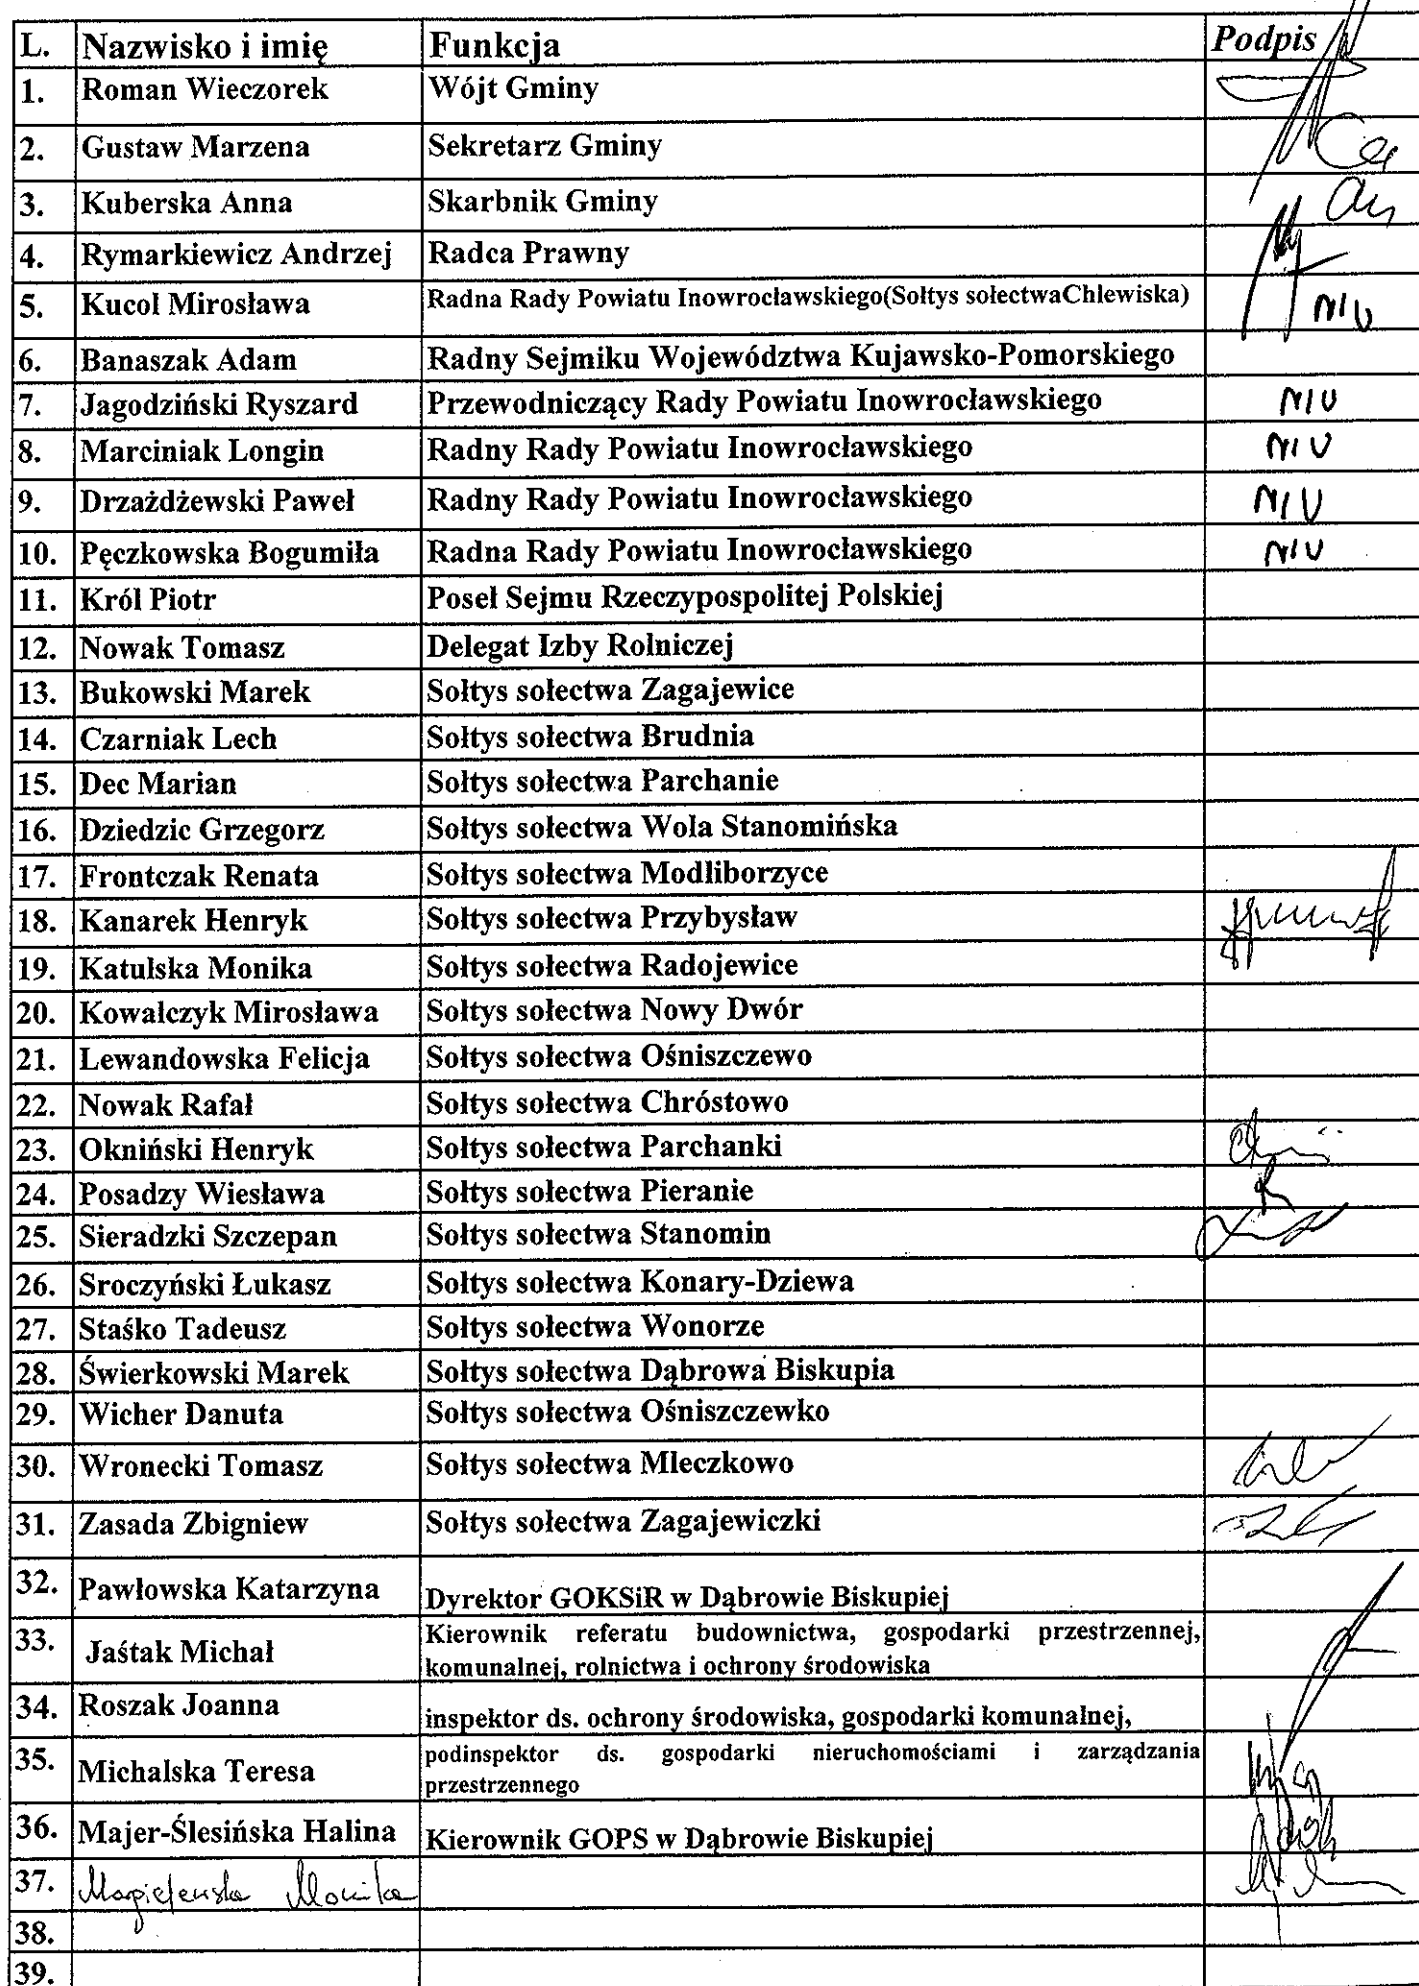 L. Nazwisko i imię Funkcja Podpis
1. Roman Wieczorek Wójt Gminy
2. Gustaw Marzena Sekretarz Gminy
3. Kuberska Anna Skarbnik Gminy
4. Rymarkiewicz Andrzej Radca Prawny
5. Kucol Mirosława Radna Rady Powiatu Inowrocławskiego(Sołtys sołectwaChlewiska) NIU
6. Banaszak Adam Radny Sejmiku Województwa Kujawsko-Pomorskiego
7. Jagodziński Ryszard Przewodniczący Rady Powiatu Inowrocławskiego NIU
8. Marciniak Longin Radny Rady Powiatu Inowrocławskiego NIU
9. Drzażdżewski Paweł Radny Rady Powiatu Inowrocławskiego NIU
10. Pęczkowska Bogumiła Radna Rady Powiatu Inowrocławskiego NIU
11. Król Piotr Poseł Sejmu Rzeczypospolitej Polskiej
12. Nowak Tomasz Delegat Izby Rolniczej
13. Bukowski Marek Sołtys sołectwa Zagajewice
14. Czarniak Lech Sołtys sołectwa Brudnia
15. Dec Marian Sołtys sołectwa Parchanie
16. Dziedzic Grzegorz Sołtys sołectwa Wola Stanomińska
17. Frontczak Renata Sołtys sołectwa Modliborzyce
18. Kanarek Henryk Sołtys sołectwa Przybysław
19. Katulska Monika Sołtys sołectwa Radojewice
20. Kowalczyk Mirosława Sołtys sołectwa Nowy Dwór
21. Lewandowska Felicja Sołtys sołectwa Ośniszczewo
22. Nowak Rafał Sołtys sołectwa Chróstowo
23. Okniński Henryk Sołtys sołectwa Parchanki
24. Posadzy Wiesława Sołtys sołectwa Pieranie
25. Sieradzki Szczepan Sołtys sołectwa Stanomin
26. Sroczyński Łukasz Sołtys sołectwa Konary-Dziewa
27. Staśko Tadeusz Sołtys sołectwa Wonorze
28. Świerkowski Marek Sołtys sołectwa Dąbrowa Biskupia
29. Wicher Danuta Sołtys sołectwa Ośniszczewko
30. Wronecki Tomasz Sołtys sołectwa Mleczkowo
31. Zasada Zbigniew Sołtys sołectwa Zagajewiczki
32. Pawłowska Katarzyna Dyrektor GOKSiR w Dąbrowie Biskupiej
33. Jaśtak Michał Kierownik referatu budownictwa, gospodarki przestrzennej,
komunalnej, rolnictwa i ochrony środowiska
34. Roszak Joanna inspektor ds. ochrony środowiska, gospodarki komunalnej,
35. Michalska Teresa podinspektor ds. gospodarki nieruchomościami i zarządzania
przestrzennego
36. Majer-Ślesińska Halina Kierownik GOPS w Dąbrowie Biskupiej
37. Monika
38.
39.